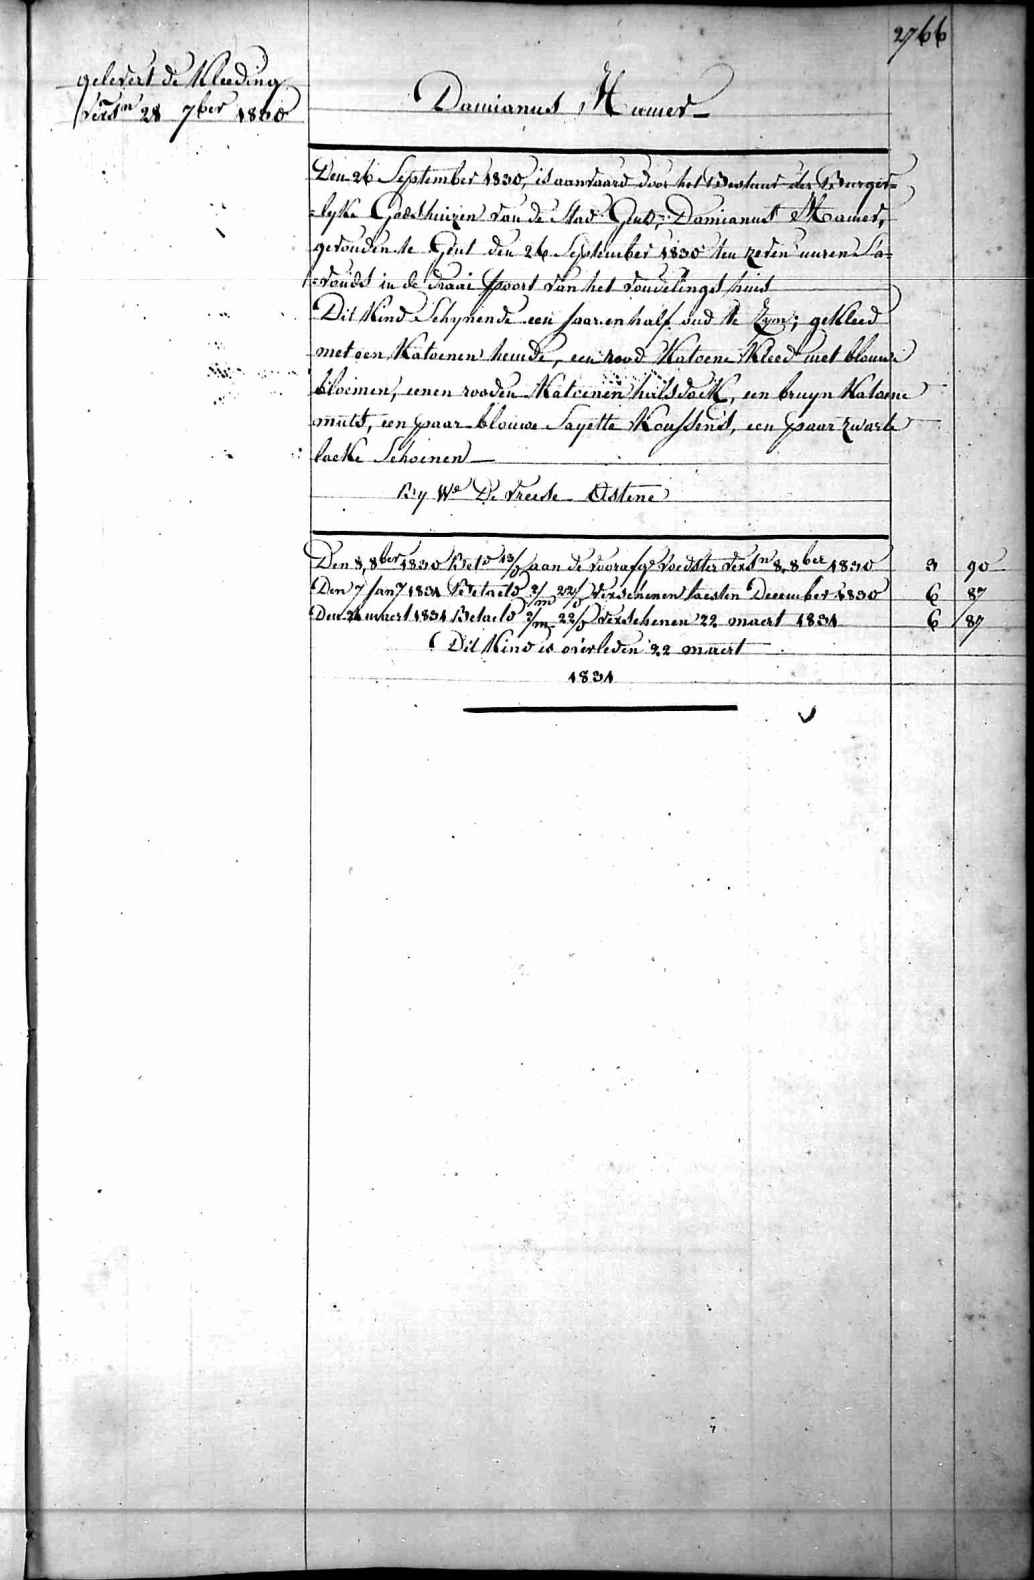 2766
gelevert de Kleeding
versn 28 7ber 1830
Damianus Hamer
Den 26 September 1830, is aanvaard door het Bestuur der Burger=
=lyke Godshuizen van de Stad Gend, Damianus Hamer,
gevonden te Gent den 26 September 1830 ten zeven uuren sa=
=vonds in de draai poort van het vondelings huis
Dit Kind Schynende een jaar en half oud te Zyn; gekleed
met een Katoenen hemde, een rood Katoene Kleed met blouwe
bloemen, eenen rooden Katoenen halsdoek, een bruyn Katoene
muts, een paar blouwe Sayette Koussens, een paar zwarte
laeke Schoenen
By We De Vreese Astene
Den 8, 8ber 1830 Beto 13/d aan de voorafge Voedster versn 8, 8ber 1830 3 90
Den 7 Jany 1831 Betaeld 2/m 22/d verschenen laesten December 1830 6 87
Den 24 maert 1831 Betaeld 2/m 22/d verschenen 22 maert 1831 6 87
Dit Kind is overleden 22 maert
1831